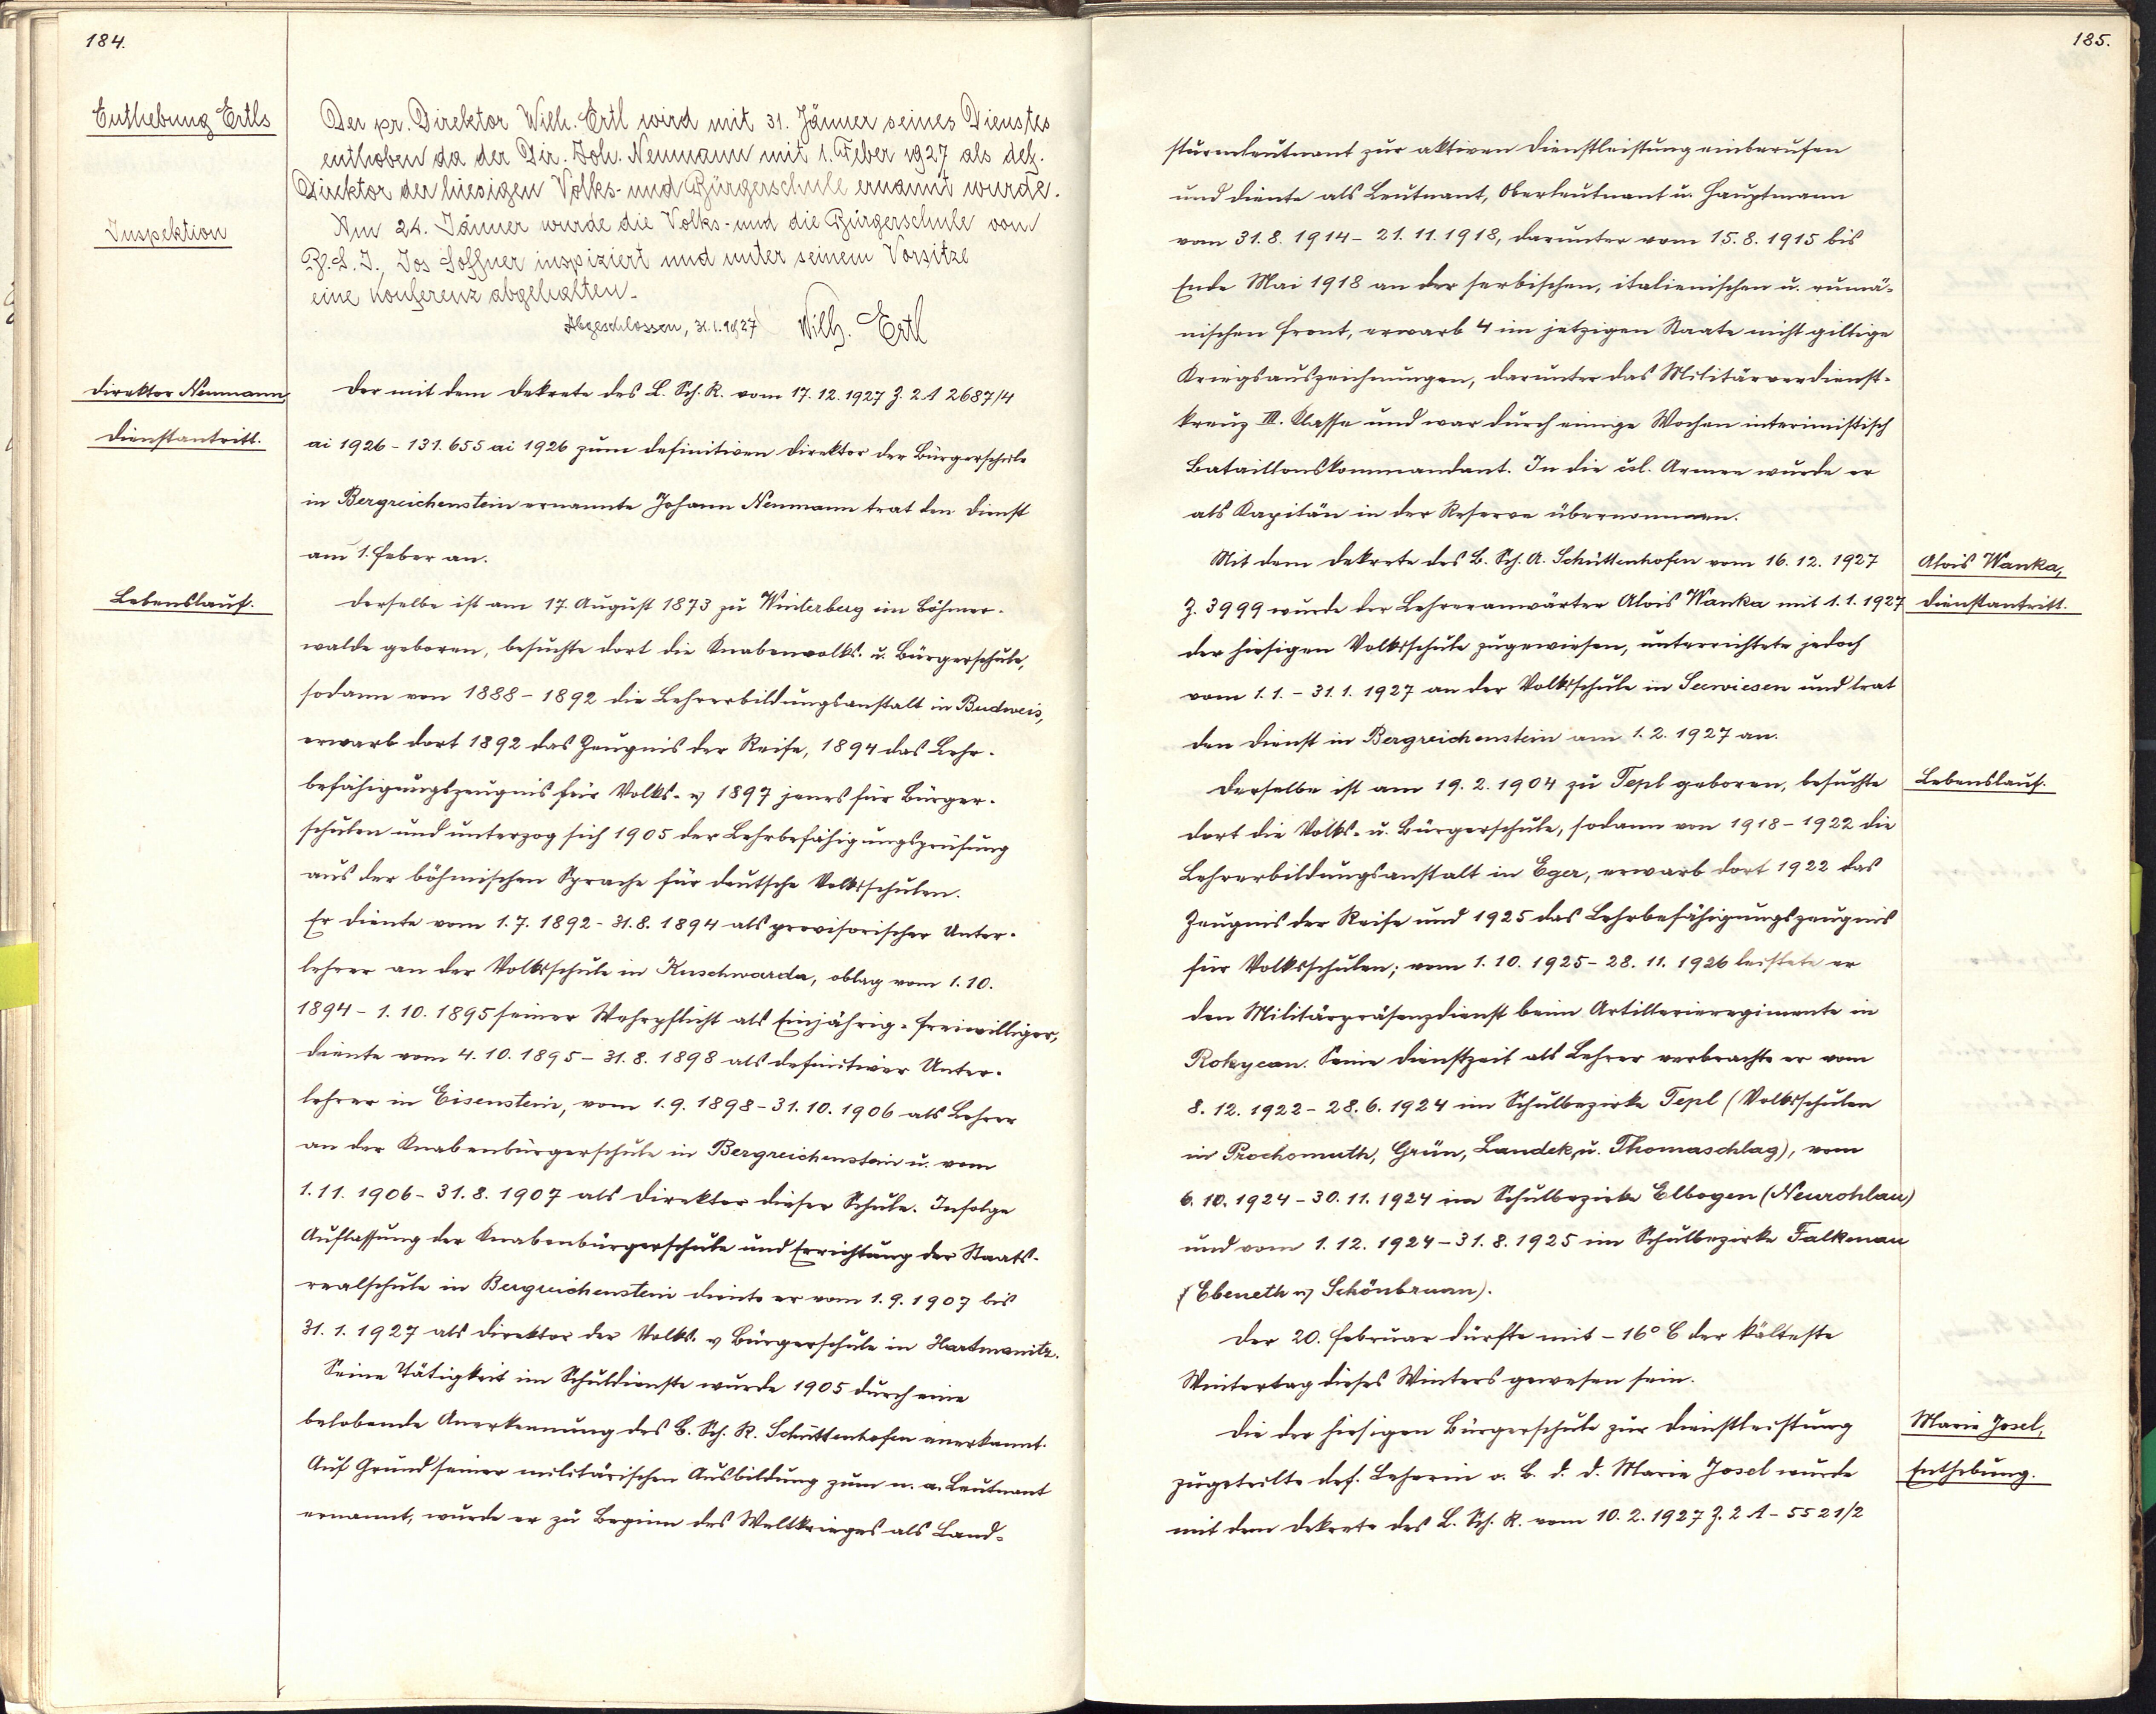 184.
Enthebung Ertls
Der pr. Direktor Wilh. Ertl wird mit 31. Jänner seines Dienstes
enthoben da der Dir. Joh. Neumann mit 1. Feber 1927 als def.
Direktor der hiesigen Volks- und Bürgerschule ernannt wurde.
Inspektion
Am 24. Jänner wurde die Volks- und die Bürgerschule von
B. S. I. Jos Soffner inspiziert und unter seinem Vorsitze
eine Konferenz abgehalten.
Abgeschlossen, 31.1.1927 Wilh. Ertl
Direktor Neumann,
Dienstantritt.
Der mit dem Dekrete des L. Sch. R. vom 17.12.1927 Z. 2 A 2687/4
ai 1926 - 131.655 ai 1926 zum definitiven Direktor der Bürgerschule
in Bergreichenstein ernannte Johann Neumann trat den Dienst
am 1. Feber an.
Lebenslauf.
Derselbe ist am 17. August 1873 zu Winterberg im Böhmer-
walde geboren, besuchte dort die Knabenvolks- u. Bürgerschule,
sodann von 1888 - 1892 die Lehrerbildungsanstalt in Budweis,
erwarb dort 1892 das Zeugnis der Reife, 1894 das Lehr-
befähigungszeugnis für Volks- u 1897 jenes für Bürger-
schulen und unterzog sich 1905 der Lehrbefähigungsprüfung
aus der böhmischen Sprache für deutsche Volksschulen.
Er diente vom 1.7.1892 - 31.8.1894 als provisorischer Unter-
lehrer an der Volksschule in Kuschwarda, oblag vom 1.10.
1894 - 1.10.1895 seiner Wehrpflicht als Einjährig-Freiwilliger,
diente vom 4.10.1895 - 31.8.1898 als definitiver Unter-
lehrer in Eisenstein, vom 1.9.1898 - 31.10.1906 als Lehrer
an der Knabenbürgerschule in Bergreichenstein u. vom
1.11.1906 - 31.8.1907 als Direktor dieser Schule. Infolge
Auflassung der Knabenbürgerschule und Errichtung der Staats-
realschule in Bergreichenstein diente er vom 1.9.1907 bis
31.1.1927 als Direktor der Volks- u Bürgerschule in Hartmanitz.
Seine Tätigkeit im Schuldienste wurde 1905 durch eine
belobende Anerkennung des B. Sch. R. Schüttenhofen anerkannt.
Auf Grund seiner militärischen Ausbildung zum n. a. Leutnant
ernannt, wurde er zu Beginn des Weltkrieges als Land-
185.
sturmleutnant zur aktiven Dienstleistung einberufen
und diente als Leutnant, Oberleutnant u. Hauptmann
vom 31.8.1914 - 21.11.1918, darunter vom 15.8.1915 bis
Ende Mai 1918 an der serbischen, italienischen u. rumä-
nischen Front, erwarb 4 im jetzigen Staate nicht giltige
Kriegsauszeichnungen, darunter das Militärverdienst-
kreuz III. Klasse und war durch einige Wochen interimistisch
Bataillonskommandant. In die čsl. Armee wurde er
als Kapitän in der Reserve übernommen.
Mit dem Dekrete des B. Sch. A. Schüttenhofen vom 16.12.1927
Z. 3999 wurde der Lehreranwärter Alois Wanka mit 1.1.1927
der hiesigen Volksschule zugewiesen, unterrichtete jedoch
vom 1.1. - 31.1.1927 an der Volksschule in Seewiesen und trat
den Dienst in Bergreichenstein am 1.2.1927 an.
Alois Wanka,
Dienstantritt.
Derselbe ist am 19.2.1904 zu Tepl geboren, besuchte
dort die Volks- u. Bürgerschule, sodann von 1918 - 1922 die
Lehrerbildungsanstalt in Eger, erwarb dort 1922 das
Zeugnis der Reife und 1925 das Lehrbefähigungszeugnis
für Volksschulen; vom 1.10.1925 - 28.11.1926 leistete er
den Militärpräsenzdienst beim Artillerieregimente in
Rokycan. Seine Dienstzeit als Lehrer verbrachte er vom
8.12.1922 - 28.6.1924 im Schulbezirke Tepl (Volksschulen
in Prochomuth, Grün, Landek u. Thomaschlag), vom
6.10.1924 - 30.11.1924 im Schulbezirke Elbogen (Neurohlau)
und vom 1.12.1924 - 31.8.1925 im Schulbezirke Falkenau
(Ebeneth u Schönbrunn).
Lebenslauf.
Der 20. Februar dürfte mit - 16° C der kälteste
Wintertag dieses Winters gewesen sein.
Die der hiesigen Bürgerschule zur Dienstleistung
zugeteilte def. Lehrerin a. B. d. d. Marie Josel wurde
mit dem Dekrete des L. Sch. R. vom 10.2.1927 Z. 2 A - 5521/2
Marie Josel,
Enthebung.